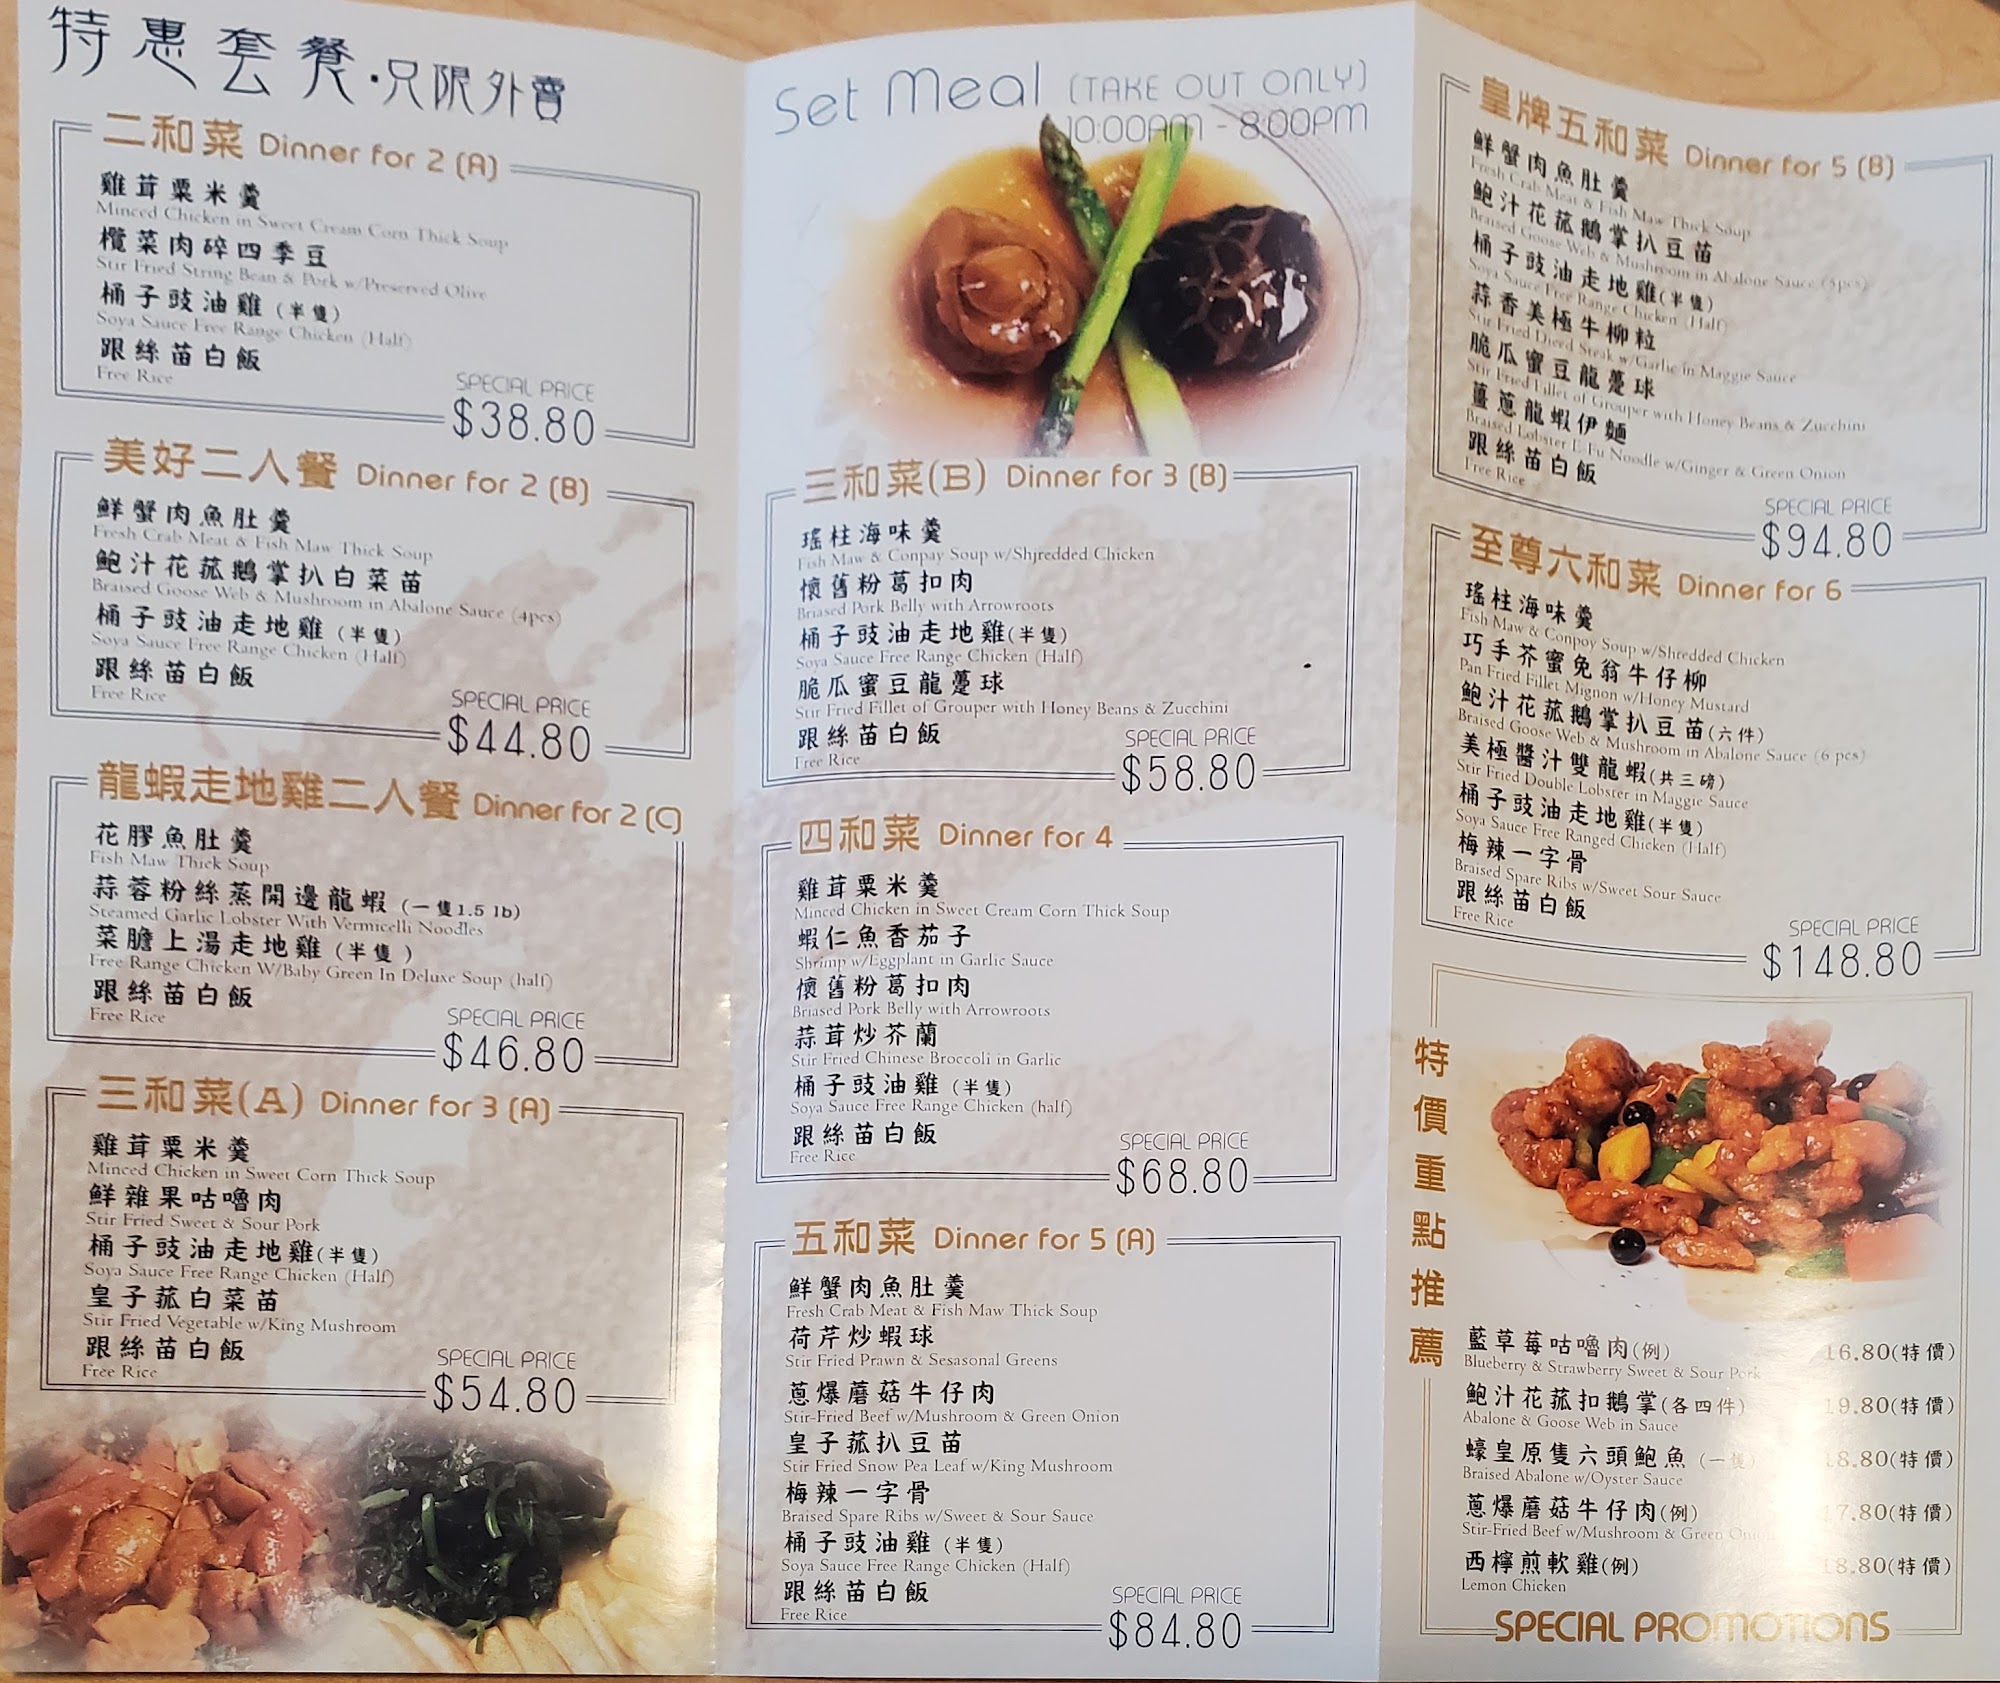 特惠套餐·只限外賣
二和菜 Dinner for 2 (A)
雞茸粟米羹
Minced Chicken in Sweet Cream Corn Thick Soup
欖菜肉碎四季豆
Stir Fried String Bean & Pork w/Preserved Olive
桶子豉油雞 (半隻)
Soya Sauce Free Range Chicken (Half)
跟絲苗白飯
Free Rice
SPECIAL PRICE
$38.80
美好二人餐 Dinner for 2 (B)
鮮蟹肉魚肚羹
Fresh Crab Meat & Fish Maw Thick Soup
鮑汁花菰鵝掌扒白菜苗
Braised Goose Web & Mushroom in Abalone Sauce (4pcs)
桶子豉油走地雞 (半隻)
Soya Sauce Free Range Chicken (Half)
跟絲苗白飯
Free Rice
SPECIAL PRICE
$44.80
龍蝦走地雞二人餐 Dinner for 2 (C)
花膠魚肚羹
Fish Maw Thick Soup
蒜蓉粉絲蒸開邊龍蝦 (一隻1.5 lb)
Steamed Garlic Lobster With Vermicelli Noodles
菜膽上湯走地雞 (半隻 )
Free Range Chicken W/Baby Green In Deluxe Soup (half)
跟絲苗白飯
Free Rice
SPECIAL PRICE
$46.80
三和菜(A) Dinner for 3 (A)
雞茸粟米羹
Minced Chicken in Sweet Corn Thick Soup
鮮雜果咕嚕肉
Stir Fried Sweet & Sour Pork
桶子豉油走地雞(半隻)
Soya Sauce Free Range Chicken (Half)
皇子菰白菜苗
Stir Fried Vegetable w/King Mushroom
跟絲苗白飯
Free Rice
SPECIAL PRICE
$54.80
Set Meal (TAKE OUT ONLY)
10:00AM - 8:00PM
三和菜(B) Dinner for 3 (B)
瑤柱海味羹
Fish Maw & Conpay Soup w/Shjredded Chicken
懷舊粉葛扣肉
Briased Pork Belly with Arrowroots
桶子豉油走地雞(半隻)
Soya Sauce Free Range Chicken (Half)
脆瓜蜜豆龍躉球
Stir Fried Fillet of Grouper with Honey Beans & Zucchini
跟絲苗白飯
Free Rice
SPECIAL PRICE
$58.80
四和菜 Dinner for 4
雞茸粟米羹
Minced Chicken in Sweet Cream Corn Thick Soup
蝦仁魚香茄子
Shrimp w/Eggplant in Garlic Sauce
懷舊粉葛扣肉
Briased Pork Belly with Arrowroots
蒜茸炒芥蘭
Stir Fried Chinese Broccoli in Garlic
桶子豉油雞 (半隻)
Soya Sauce Free Range Chicken (half)
跟絲苗白飯
Free Rice
SPECIAL PRICE
$68.80
五和菜 Dinner for 5 (A)
鮮蟹肉魚肚羹
Fresh Crab Meat & Fish Maw Thick Soup
荷芹炒蝦球
Stir Fried Prawn & Sesasonal Greens
蔥爆蘑菇牛仔肉
Stir-Fried Beef w/Mushroom & Green Onion
皇子菰扒豆苗
Stir Fried Snow Pea Leaf w/King Mushroom
梅辣一字骨
Braised Spare Ribs w/Sweet & Sour Sauce
桶子豉油雞 (半隻)
Soya Sauce Free Range Chicken (Half)
跟絲苗白飯
Free Rice
SPECIAL PRICE
$84.80
皇牌五和菜 Dinner for 5 (B)
鮮蟹肉魚肚羹
Fresh Crab Meat & Fish Maw Thick Soup
鮑汁花菰鵝掌扒豆苗
Braised Goose Web & Mushroom in Abalone Sauce (5pcs)
桶子豉油走地雞(半隻)
Soya Sauce Free Range Chicken (Half)
蒜香美極牛柳粒
Stir Fried Diced Steak w/Garlic in Maggie Sauce
脆瓜蜜豆龍躉球
Stir Fried Fillet of Grouper with Honey Beans & Zucchini
薑蔥龍蝦伊麵
Braised Lobster E-Fu Noodle w/Ginger & Green Onion
跟絲苗白飯
Free Rice
SPECIAL PRICE
$94.80
至尊六和菜 Dinner for 6
瑤柱海味羹
Fish Maw & Conpoy Soup w/Shredded Chicken
巧手芥蜜免翁牛仔柳
Pan Fried Fillet Mignon w/Honey Mustard
鮑汁花菰鵝掌扒豆苗(六件)
Braised Goose Web & Mushroom in Abalone Sauce (6 pcs)
美極醬汁雙龍蝦(共三磅)
Stir Fried Double Lobster in Maggie Sauce
桶子豉油走地雞(半隻)
Soya Sauce Free Ranged Chicken (Half)
梅辣一字骨
Braised Spare Ribs w/Sweet Sour Sauce
跟絲苗白飯
Free Rice
SPECIAL PRICE
$148.80
特價重點推薦
藍草莓咕嚕肉(例) 16.80(特價)
Blueberry & Strawberry Sweet & Sour Pork
鮑汁花菰扣鵝掌(各四件) 19.80(特價)
Abalone & Goose Web in Sauce
蠔皇原隻六頭鮑魚 (一隻) 18.80(特價)
Braised Abalone w/Oyster Sauce
蔥爆蘑菇牛仔肉(例) 17.80(特價)
Stir-Fried Beef w/Mushroom & Green Onion
西檸煎軟雞(例) 18.80(特價)
Lemon Chicken
SPECIAL PROMOTIONS